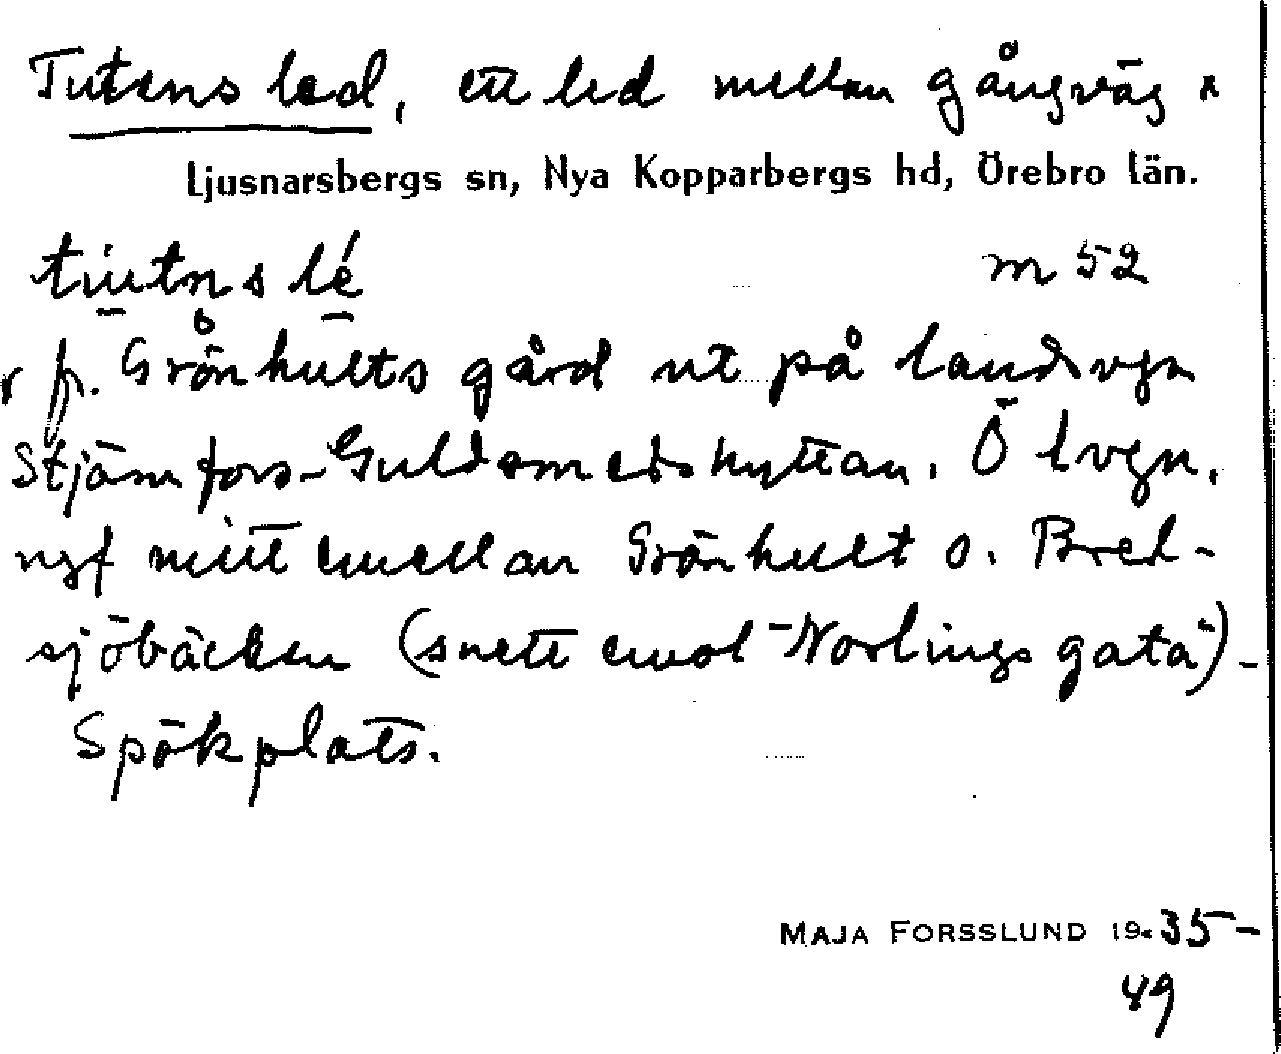 Tutens led, ett led mellan gångväg x
Ljusnarsbergs sn, Nya Kopparbergs hd, Örebro län.
m 52
fr. Grönhults gård ut på landsvgn
Stjärnfors-Guldsmedshyttan. Ö lvgn.
ngf mitt emellan Grönhult o. Bred-
sjöbäcken (snett emot "Norlings gata")-
Spökplats.
MAJA FORSSLUND 19 35-
49